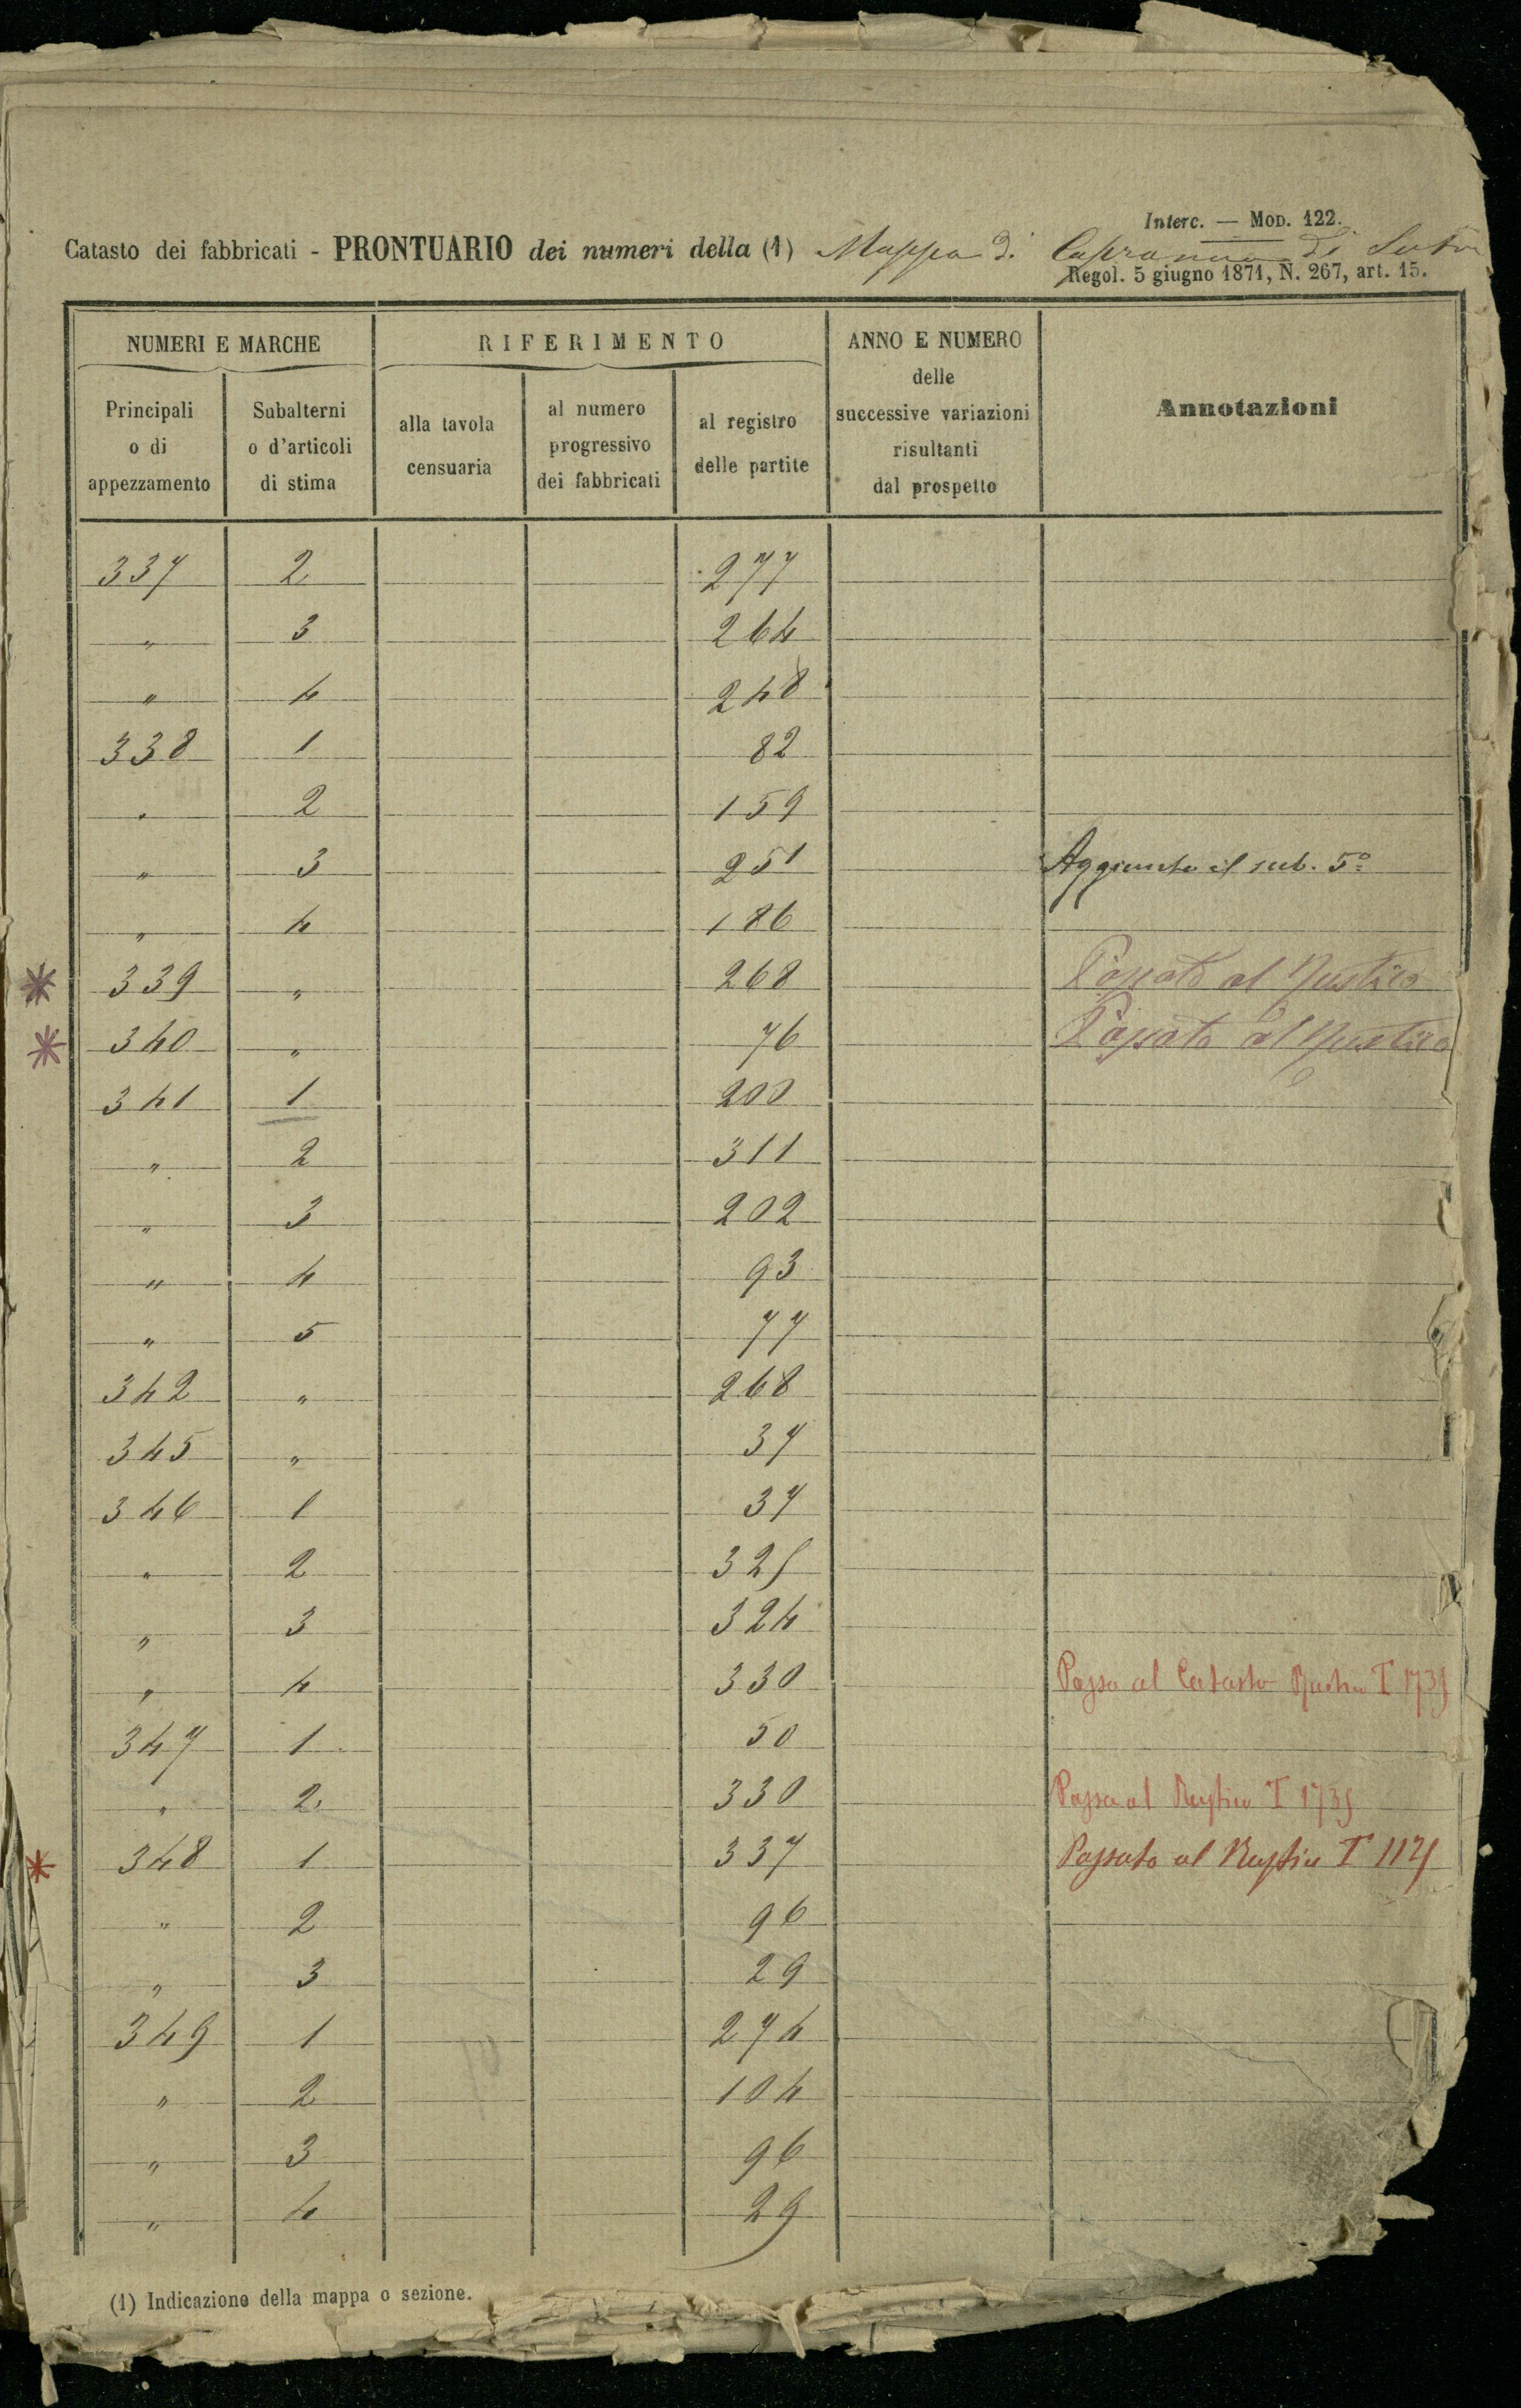 Interc. — Mod. 122.
Catasto dei fabbricati - PRONTUARIO dei numeri della (1) Mappa di Capranica di Sutri
Regol. 5 giugno 1871, N. 267, art. 15.
NUMERI E MARCHE RIFERIMENTO ANNO E NUMERO delle successive variazioni risultanti dal prospetto Annotazioni
Principali o di appezzamento Subalterni o d'articoli di stima alla tavola censuaria al numero progressivo dei fabbricati al registro delle partite
337 2 277
" 3 264
" 4 248
338 1 82
" 2 159
" 3 251 Aggiunto il sub. 5º
" 4 186
* 339 " 268 Passato al Rustico
* 340 " 76 Passato al Rustico
341 1 200
" 2 311
" 3 202
" 4 93
" 5 77
342 " 268
345 " 37
346 1 37
" 2 325
" 3 324
" 4 330 Passa al Catasto Rustico T 1735
347 1 50
" 2 330 Passa al Rustico T 1735
* 348 1 337 Passato al Rustico T
" 2 96
" 3 29
349 1 274
" 2 104
" 3 96
" 4 29
(1) Indicazione della mappa o sezione.